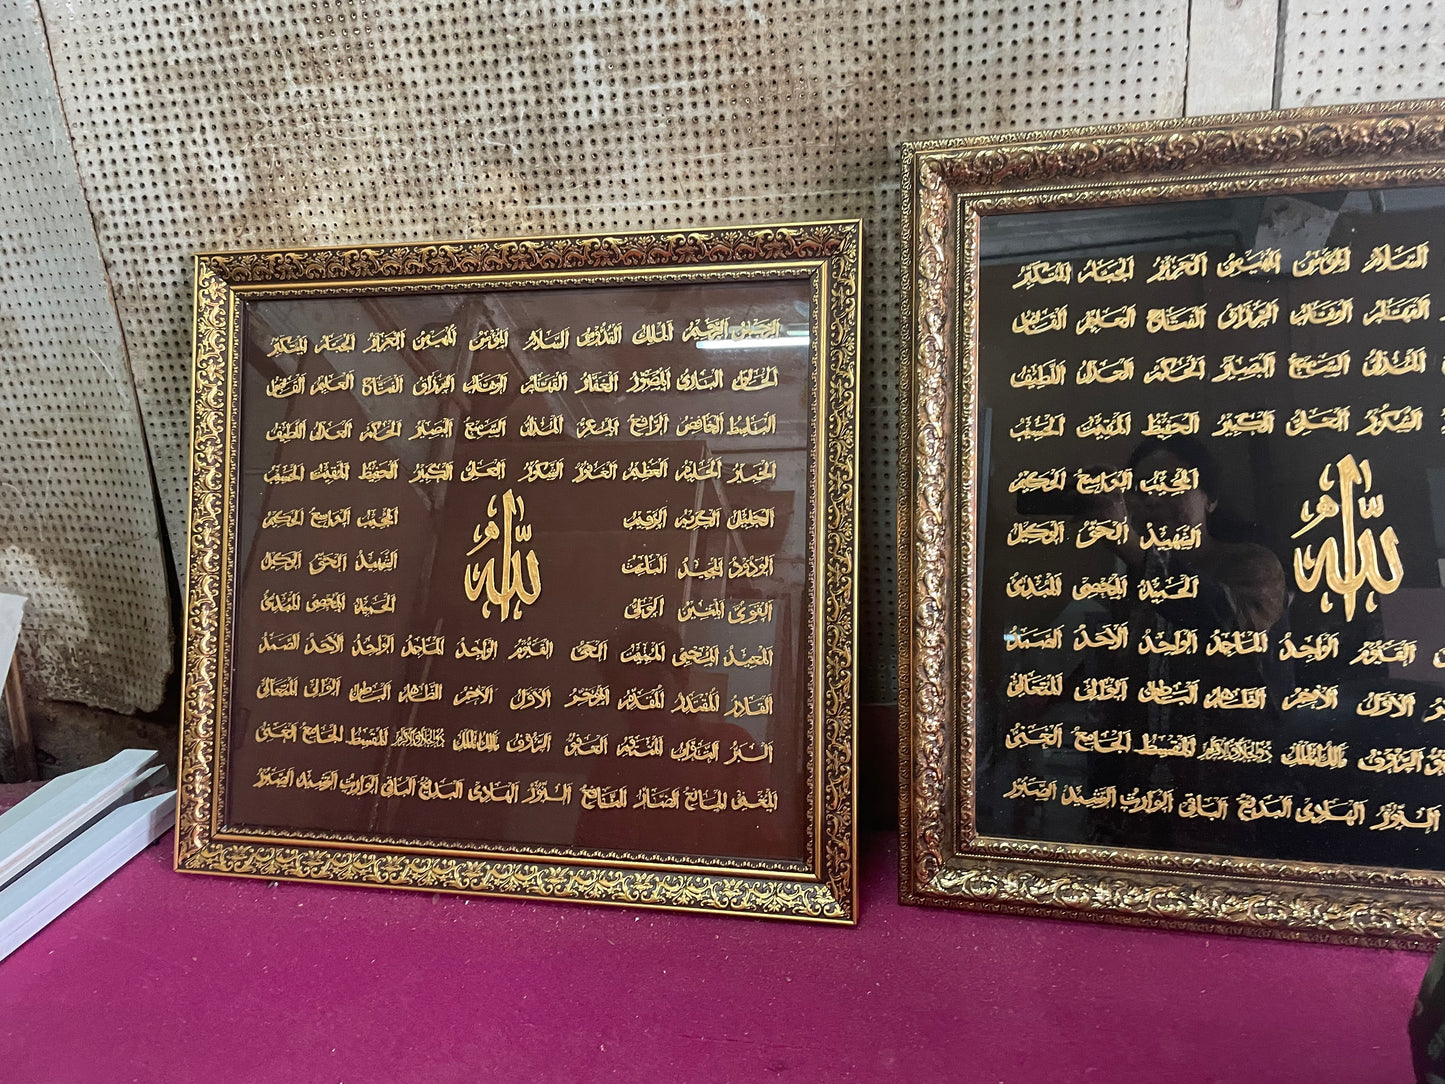 الرحمن الرحيم الملك القدوس السلام المؤمن المهيمن العزيز الجبار المتكبر
الخالق البارئ المصور الغفار القهار الوهاب الرزاق الفتاح العليم القابض
الباسط الخافض الرافع المعز المذل السميع البصير الحكم العدل اللطيف
الخبير الحليم العظيم الغفور الشكور العلي الكبير الحفيظ المقيت الحسيب
الجليل الكريم الرقيب المجيب الواسع الحكيم
الودود المجيد الباعث الشهيد الحق الوكيل
الله
القوي المتين الولي الحميد المحصي المبدئ
المعيد المحيي المميت الحي القيوم الواجد الماجد الواحد الأحد الصمد
القادر المقتدر المقدم المؤخر الأول الآخر الظاهر الباطن الوالي المتعالي
البر التواب المنتقم العفو الرؤف مالك الملك ذو الجلال والإكرام المقسط الجامع الغني
المغني المانع الضار النافع النور الهادي البديع الباقي الوارث الرشيد الصبور
السلام المؤمن المهيمن العزيز الجبار المتكبر
القهار الوهاب الرزاق الفتاح العليم القابض
المذل السميع البصير الحكم العدل اللطيف
الشكور العلي الكبير الحفيظ المقيت الحسيب
المجيب الواسع الحكيم
الشهيد الحق الوكيل
الله
الحميد المحصي المبدئ
القيوم الواجد الماجد الواحد الأحد الصمد
الأول الآخر الظاهر الباطن الوالي المتعالي
الرؤف مالك الملك ذو الجلال والإكرام المقسط الجامع الغني
النور الهادي البديع الباقي الوارث الرشيد الصبور